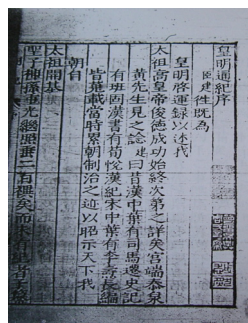 皇明通紀序
臣建往既為
皇明啓運錄以述我
太祖高皇帝俊德成功始終次第之詳矣宮端泰泉
黃先生見之諗建曰昔漢中葉有司馬遷史記
有班固漢書有荀悅漢紀宋中葉有李燾長編
皆載當時累朝制治之迹以昭示天下我
朝自
太祖開基
聖子神孫重光繼照垂二百矣而未有者子